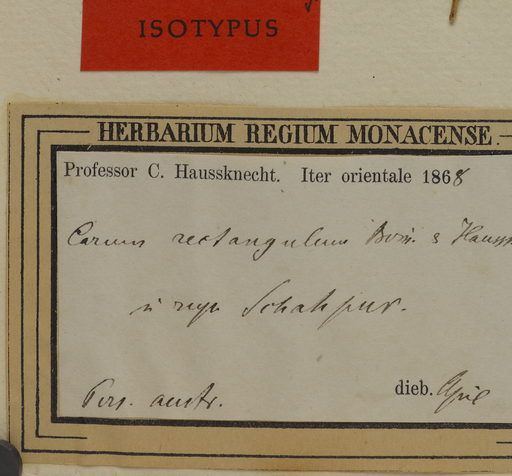 ISOTYPUS
HERBARIUM REGIUM MONACENSE.
Professor C. Haussknecht. Iter orientale 1868
Carum rectangulum Boiss. & Haussk
in reg. Schahpur.
Pers. austr. dieb. April